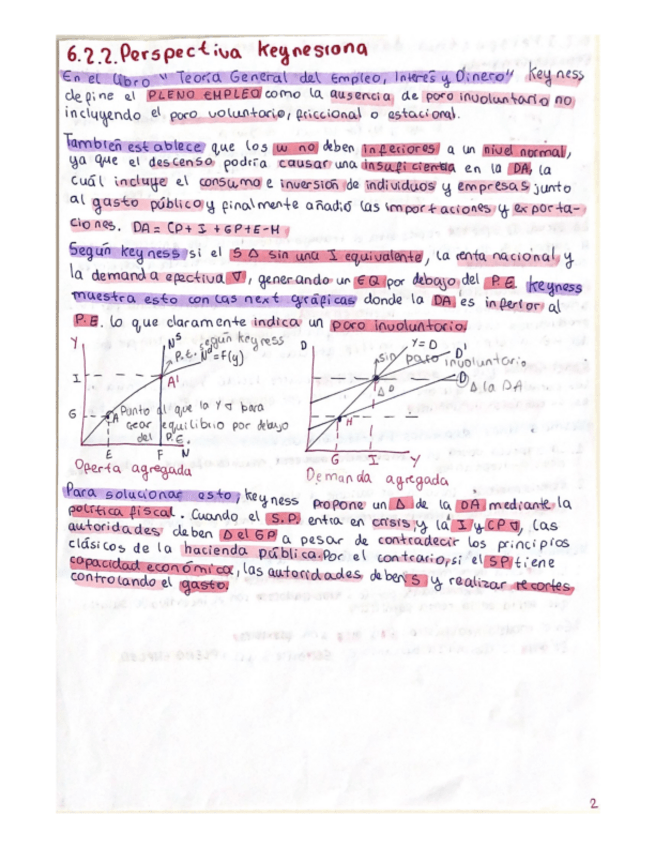 6.2.2. Perspectiva keynesiana
En el libro "Teoría General del Empleo, Interés y Dinero" Keyness
define el PLENO EMPLEO como la ausencia de paro involuntario no
incluyendo el paro voluntario, friccional o estacional.
También establece que los w no deben inferiores a un nivel normal,
ya que el descenso podría causar una insuficientia en la DA, la
cuál incluye el consumo e inversión de individuos y empresas junto
al gasto público y finalmente añadió las importaciones y exporta-
ciones. DA = CP + I + GP + E - H
Según keyness si el S Δ sin una I equivalente, la renta nacional y
la demanda efectiva ∇, generando un EQ por debajo del P.E. Keyness
muestra esto con las next gráficas donde la DA es inferior al
P.E. lo que claramente indica un paro involuntario.
Y
N^S según keyness
P.E. N^D = f(y)
I
A'
G
A
Punto al que la Y ∇ para
crear equilibrio por debajo
del P.E.
E F N
Oferta agregada
D
Y = D
D'
sin paro involuntario
D
Δ la DA
Δ D
H
G I Y
Demanda agregada
Para solucionar esto, keyness propone un Δ de la DA mediante la
política fiscal. Cuando el S.P. entra en crisis y la I y CP ∇, las
autoridades deben Δ el GP a pesar de contradecir los principios
clásicos de la hacienda pública. Por el contrario, si el SP tiene
capacidad económica, las autoridades deben S y realizar recortes
controlando el gasto.
2